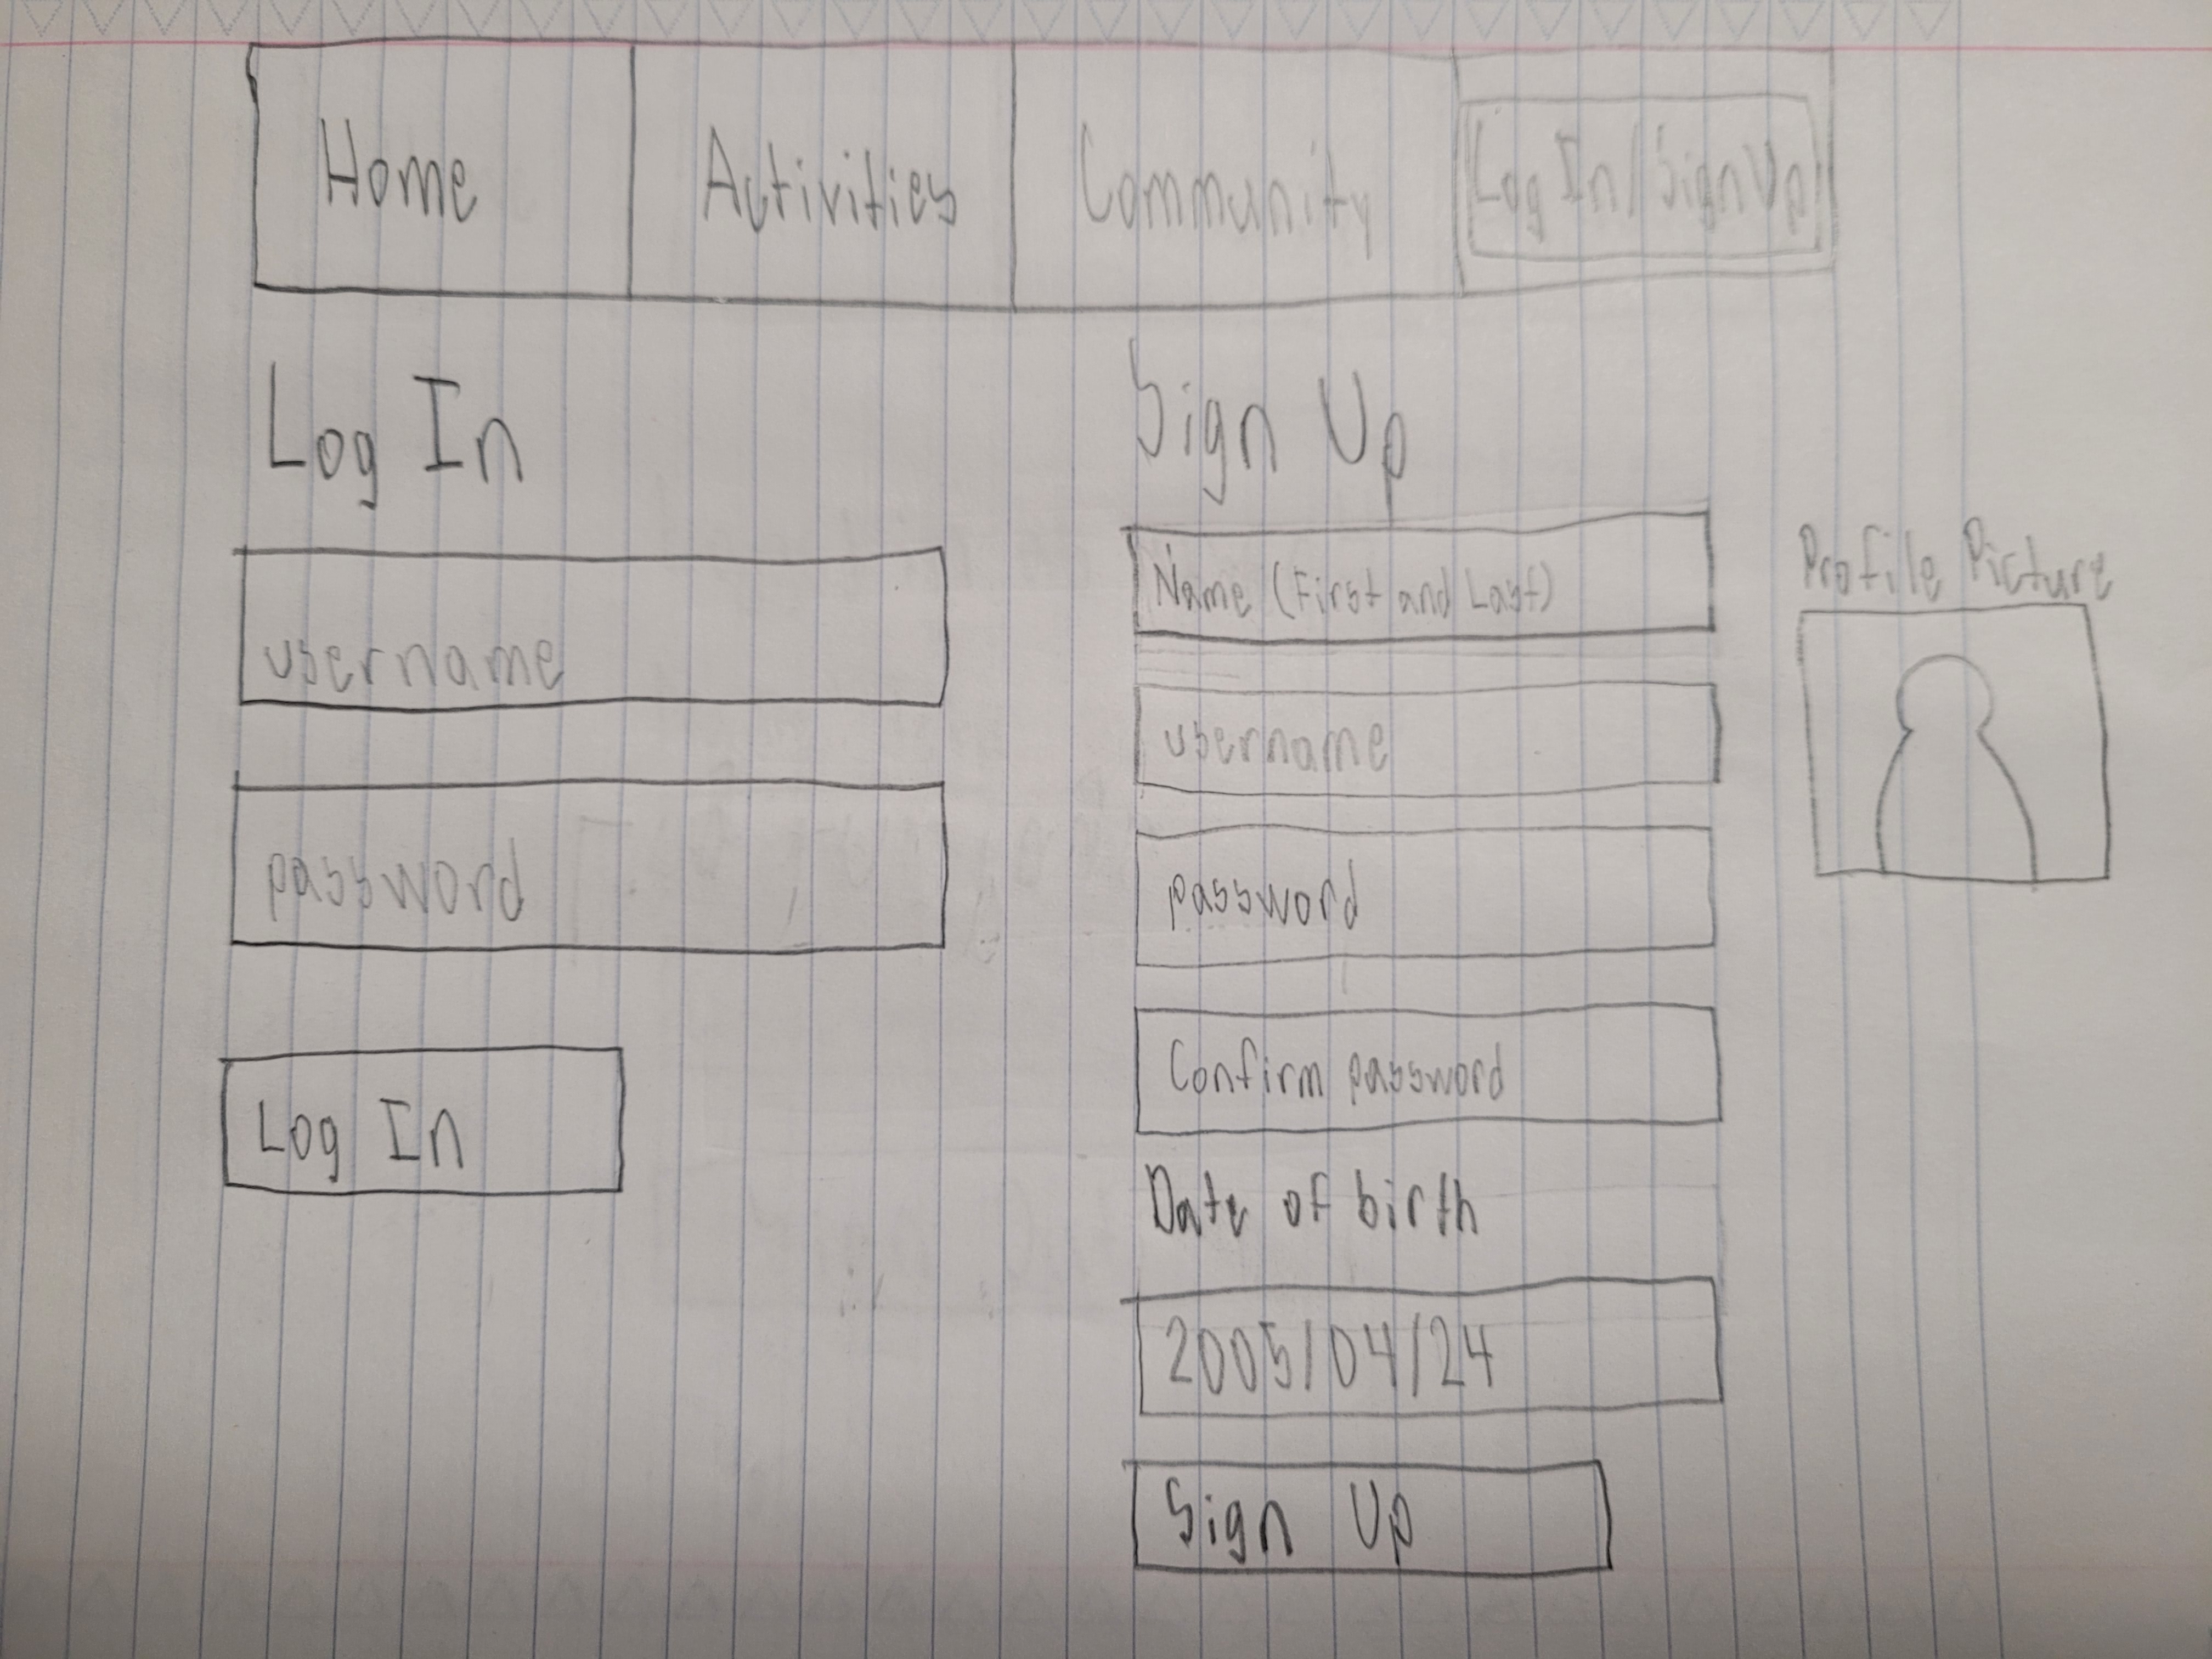 Home Activities Community Log In/Sign Up
Log In
username
password
Log In
Sign Up
Name (First and Last)
username
password
Confirm password
Date of birth
2005/04/24
Sign Up
Profile Picture